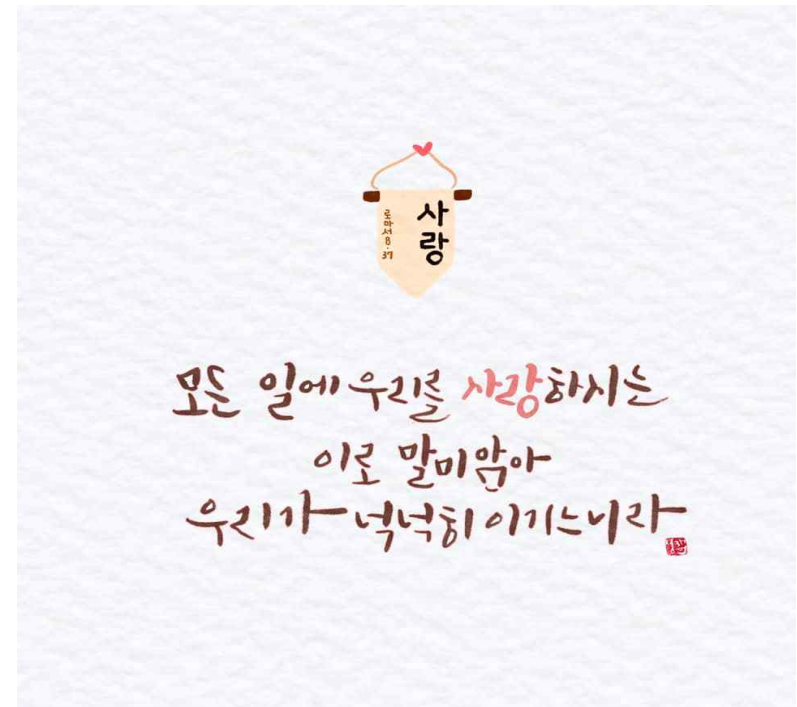 사랑
로마서 8·37
모든 일에 우리를 사랑하시는
이로 말미암아
우리가 넉넉히 이기느니라